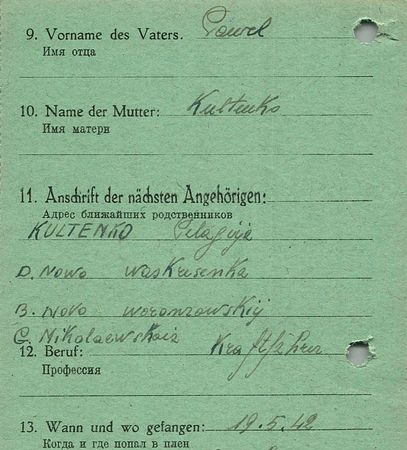 9. Vorname des Vaters. Pawel
Имя отца
10. Name der Mutter: Kultenko
Имя матери
11. Anschrift der nächsten Angehörigen:
Адрес ближайших родственников
KULTENKO Pelagija
D. Nowo waskrisenka
B. Novo woronzowskij
G. Nikolaewskaia
12. Beruf: Kraftfahrer
Профессия
13. Wann und wo gefangen: 19.5.42
Когда и где попал в плен